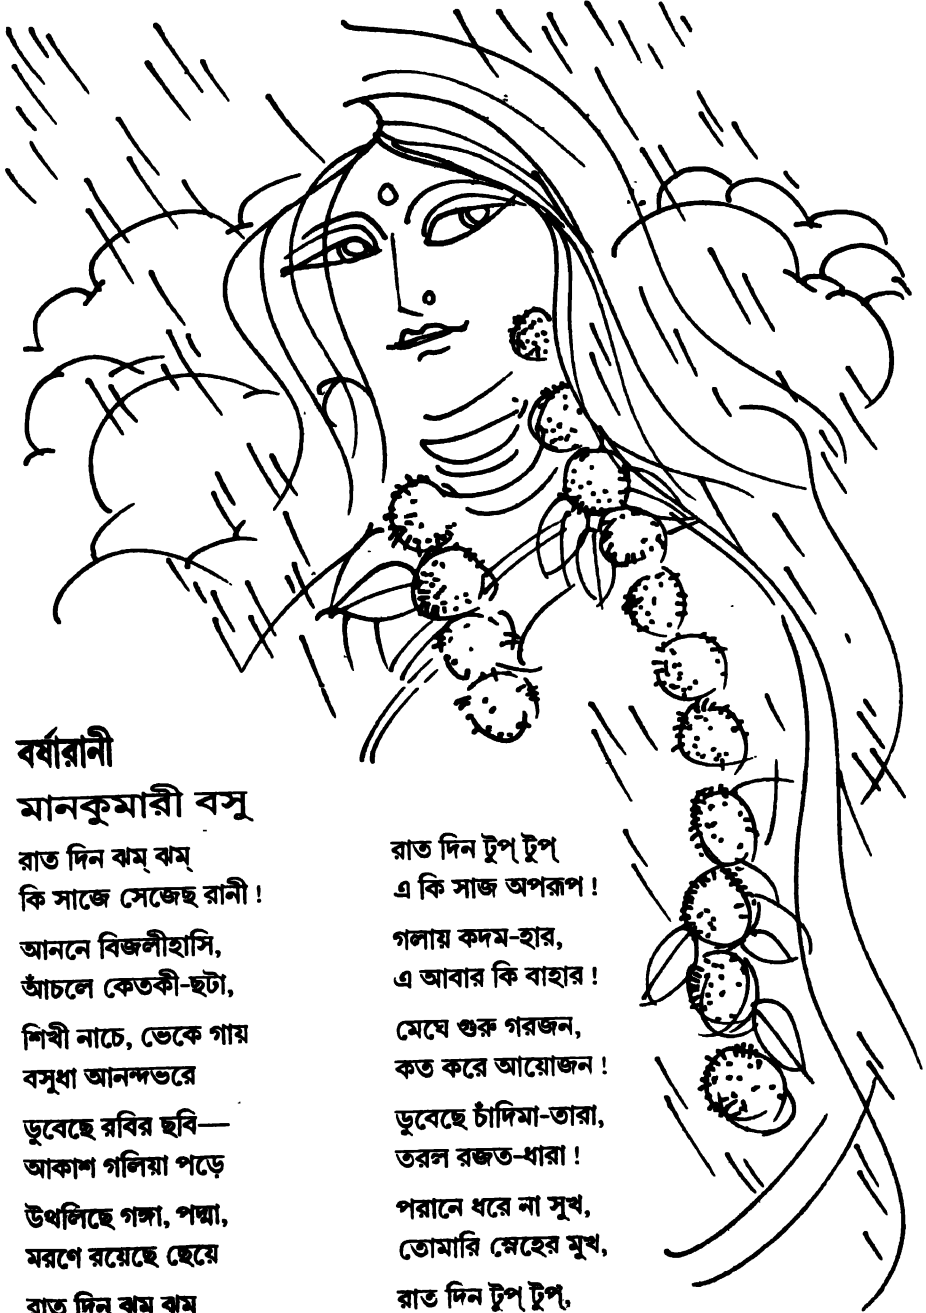 বর্ষারানী
মানকুমারী বসু
রাত দিন ঝম্ ঝম্
কি সাজে সেজেছ রানী !
আননে বিজলীহাসি,
আঁচলে কেতকী-ছটা,
শিখী নাচে, ভেকে গায়
বসুধা আনন্দভরে
ডুবেছে রবির ছবি—
আকাশ গলিয়া পড়ে
উথলিছে গঙ্গা, পদ্মা,
মরণে রয়েছে ছেয়ে
রাত দিন ঝম্ ঝম্
রাত দিন টুপ্ টুপ্
এ কি সাজ অপরূপ !
গলায় কদম-হার,
এ আবার কি বাহার !
মেঘে গুরু গরজন,
কত করে আয়োজন !
ডুবেছে চাঁদিমা-তারা,
তরল রজত-ধারা !
পরানে ধরে না সুখ,
তোমারি স্নেহের মুখ,
রাত দিন টুপ্ টুপ্,